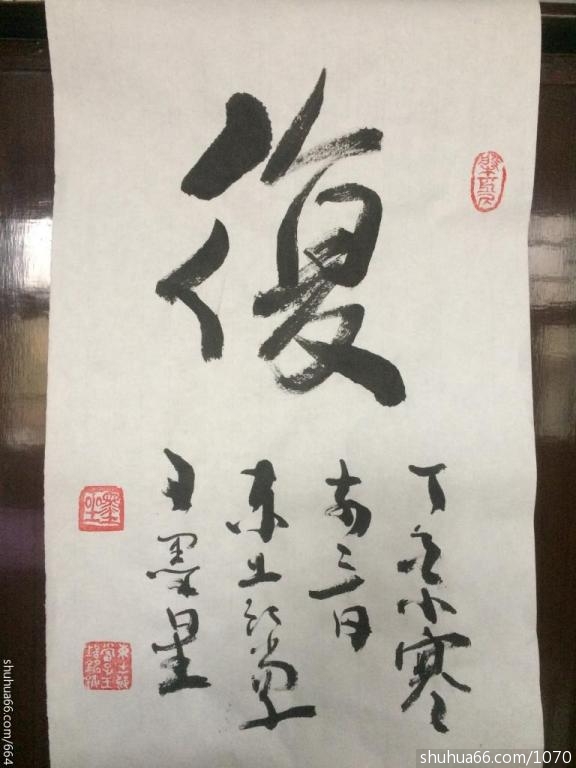 復
丁酉小寒
前三日
东土
王墨星
shuhua66.com/664
shuhua66.com/1070